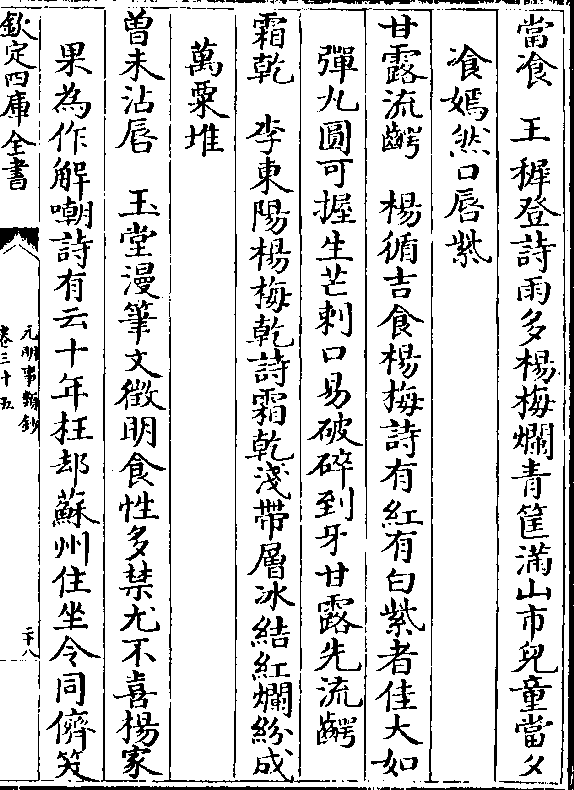 當飡　王穉登詩雨多楊梅爛青筐滿山市兒童當夕
飡嫣然口唇紫
甘露流齶　楊循吉食楊梅詩有紅有白紫者佳大如
彈丸圓可握生芒刺口易破碎到牙甘露先流齶
霜乾　李東陽楊梅乾詩霜乾淺帶層冰結紅爛紛成
萬粟堆
曽未沾唇　玉堂漫筆文徵明食性多禁尤不喜楊家
果為作解嘲詩有云十年枉却蘇州住坐令同儕笑
欽定四庫全書
元明事類鈔
卷三十五
二十八